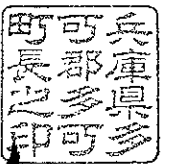 兵庫県多
可郡多可
町長之印